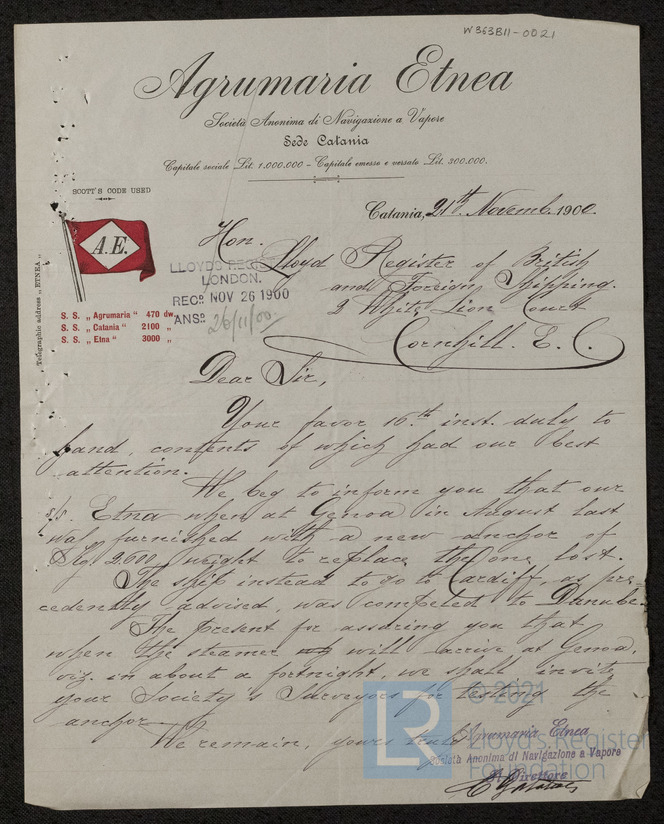 W363B11-0021
Agrumaria Etnea
Società Anonima di Navigazione a Vapore
Sede Catania
Capitale sociale Lit. 1.000.000 - Capitale emesso e versato Lit. 300.000.
SCOTT'S CODE USED
A.E.
Telegraphic address „ETNEA„
S. S. „ Agrumaria " 470 dw.
S. S. „ Catania " 2100 „
S. S. „ Etna " 3000 „
Catania, 21th Novemb. 1900.
LLOYD'S REGIS
LONDON.
RECD NOV 26 1900
ANSD 26/11/00
Hon.
Lloyd Register of British
and Foreign Shipping.
2 White Lion Court
Cornhill. E. C.
Dear Sir,
Your favor 16th inst. duly to
hand, contents of which had our best
attention.
We beg to inform you that our
s/s. Etna when at Genoa in August last
was furnished with a new anchor of
2.600 weight to replace the one lost.
The ship instead to go to Cardiff, as pre-
cedently advised, was competed to Danube.
The present for assuring you that
when the steamer will arrive at Genoa,
viz. in about a fortnight, we shall invite
your Society's Surveyors for testing the
anchor.
We remain, yours truly
Agrumaria Etnea
Società Anonima di Navigazione a Vapore
Il Direttore
LR
© 2021
Lloyd's Register
Foundation